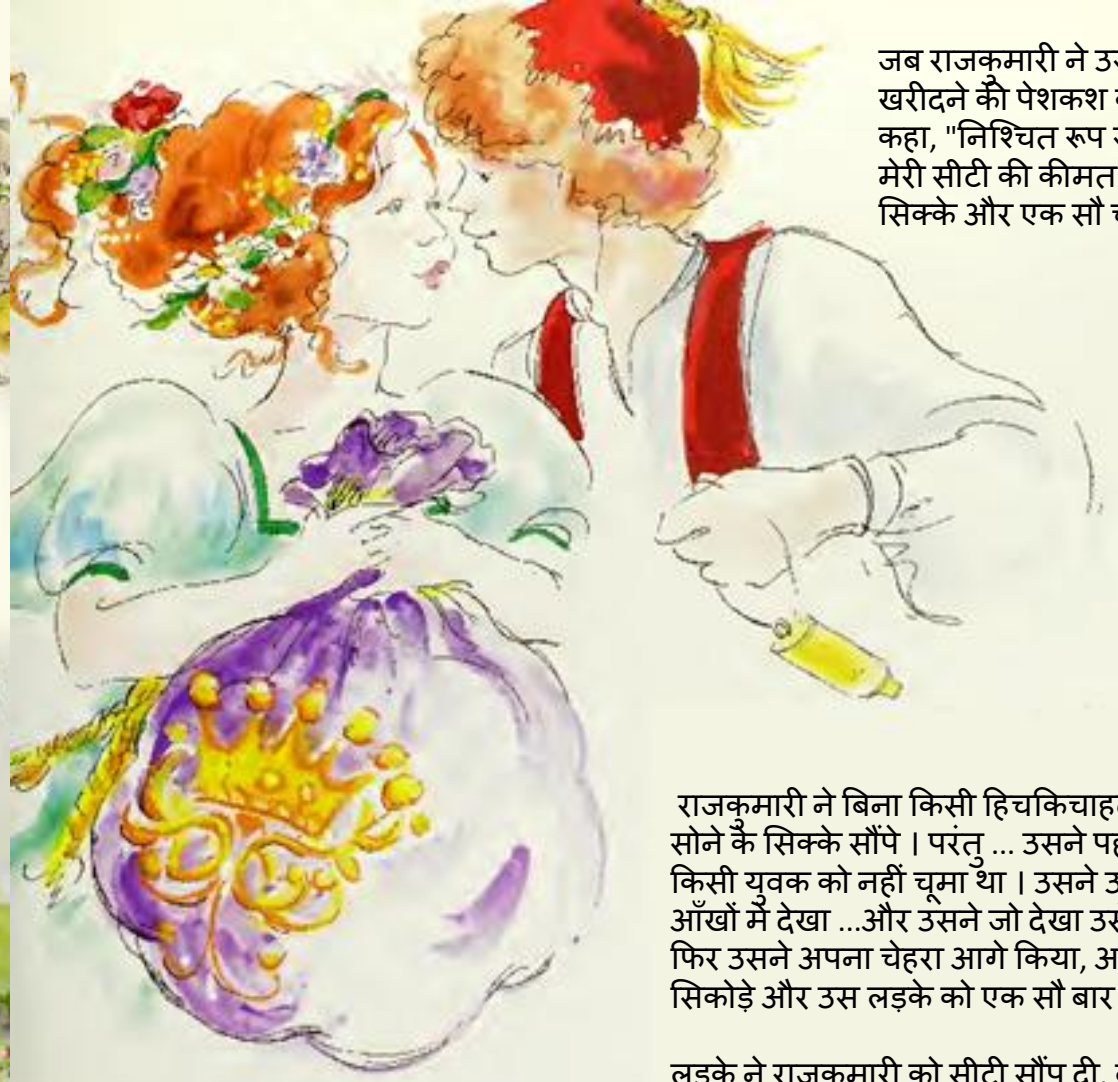 जब राजकुमारी ने
खरीदने की पेशकश
कहा, "निश्चित रूप
मेरी सीटी की कीमत
सिक्के और एक सौ
राजकुमारी ने बिना किसी
सोने के सिक्के सौंपे । परंतु ... उसने
किसी युवक को नहीं चूमा था । उसने
आँखों में देखा ...और उसने जो देखा
फिर उसने अपना चेहरा आगे किया,
सिकोड़े और उस लड़के को एक सौ बार
लड़के ने राजकुमारी को सीटी सौंप दी,